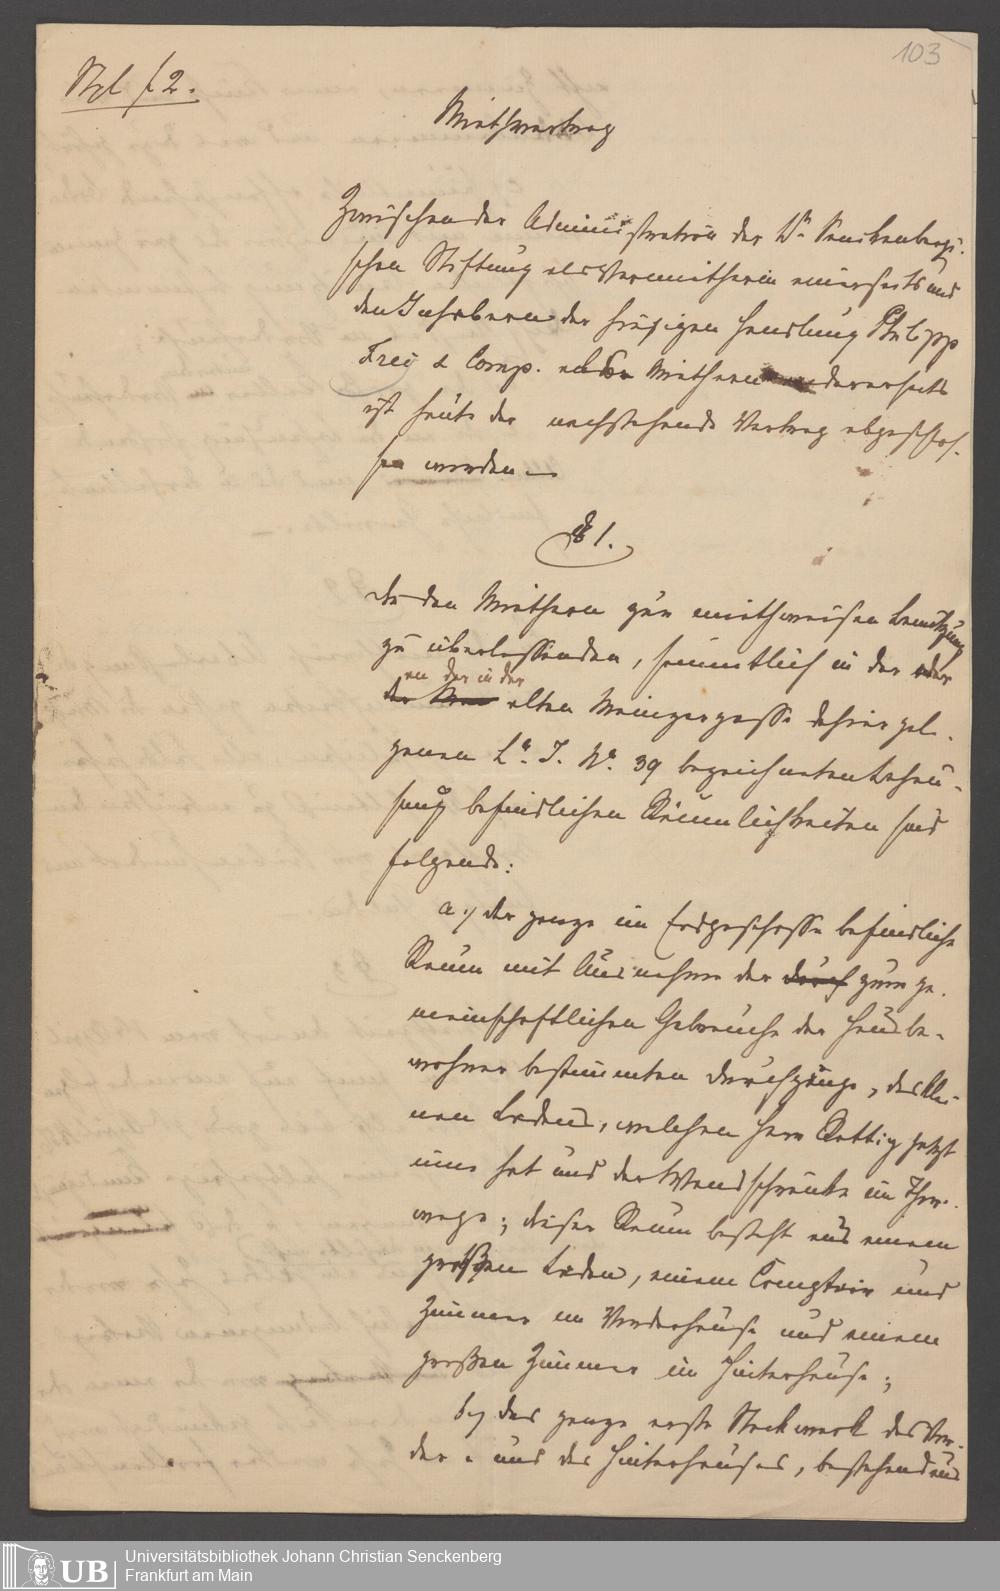 103
Stpl f 2.
Miethvertrag
Zwischen der Administration der Dr. Senckenbergi-
schen Stiftung als Vermietherin einerseits und
den Inhabern der hiesigen Handlung Philipp
Frei & Comp. als Miethern andererseits
ist heute der nachstehende Vertrag abgeschlos-
sen worden. —
§ 1.
Die den Miethern zur miethweisen Benützung
zu überlassenden, sämmtlich in der
an der in der
der alten Mainzergasse dahier gele-
genen La. J. No. 39 bezeichneten Behau-
sung befindlichen Räumlichkeiten sind
folgende:
a.) der ganze im Erdgeschosse befindliche
Raum mit Ausnahme der durch zum ge-
meinschaftlichen Gebrauche der Hausbe-
wohner bestimmten Durchgänge, des klei-
nen Ladens, welchen Herr Rettig jetzt
inne hat und der Wandschränke im Thor-
wege; dieser Raum besteht aus einem
großen Laden, einem Comptoir und
Zimmer im Vorderhause und einem
großen Zimmer im Hinterhause;
b.) das ganze erste Stockwerk des Vor-
der- und des Hinterhauses, bestehend aus
UB
Universitätsbibliothek Johann Christian Senckenberg
Frankfurt am Main